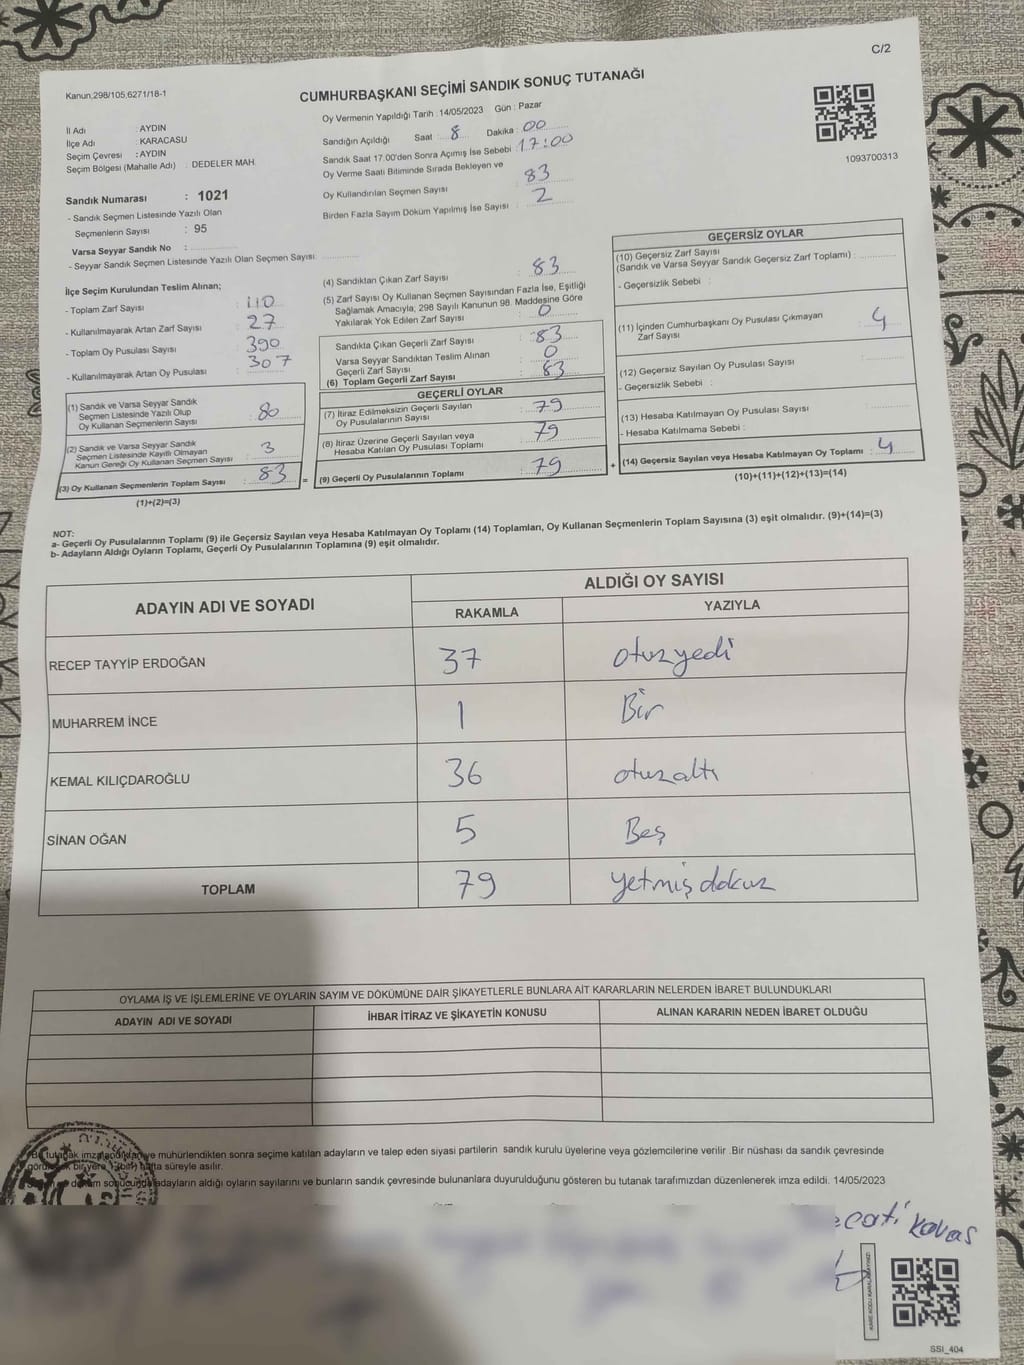 C/2
Kanun,298/105,6271/18-1
CUMHURBAŞKANI SEÇİMİ SANDIK SONUÇ TUTANAĞI
İl Adı : AYDIN
İlçe Adı : KARACASU
Seçim Çevresi : AYDIN
Seçim Bölgesi (Mahalle Adı) : DEDELER MAH.
Sandık Numarası : 1021
- Sandık Seçmen Listesinde Yazılı Olan
Seçmenlerin Sayısı : 95
Varsa Seyyar Sandık No :
- Seyyar Sandık Seçmen Listesinde Yazılı Olan Seçmen Sayısı:
Oy Vermenin Yapıldığı Tarih : 14/05/2023 Gün : Pazar
Sandığın Açıldığı Saat : 8 Dakika : 00
Sandık Saat 17.00'den Sonra Açımış İse Sebebi : 17:00
Oy Verme Saati Bitiminde Sırada Bekleyen ve
Oy Kullandırılan Seçmen Sayısı : 83
Birden Fazla Sayım Döküm Yapılmış İse Sayısı : 2
1093700313
İlçe Seçim Kurulundan Teslim Alınan;
- Toplam Zarf Sayısı : 110
- Kullanılmayarak Artan Zarf Sayısı : 27
- Toplam Oy Pusulası Sayısı : 390
- Kullanılmayarak Artan Oy Pusulası : 307
(1) Sandık ve Varsa Seyyar Sandık
Seçmen Listesinde Yazılı Olup
Oy Kullanan Seçmenlerin Sayısı : 80
(2) Sandık ve Varsa Seyyar Sandık
Seçmen Listesinde Kayıtlı Olmayan
Kanun Gereği Oy Kullanan Seçmen Sayısı : 3
(3) Oy Kullanan Seçmenlerin Toplam Sayısı : 83
(1)+(2)=(3)
(4) Sandıktan Çıkan Zarf Sayısı : 83
(5) Zarf Sayısı Oy Kullanan Seçmen Sayısından Fazla İse, Eşitliği
Sağlamak Amacıyla; 298 Sayılı Kanunun 98. Maddesine Göre
Yakılarak Yok Edilen Zarf Sayısı : 0
Sandıkta Çıkan Geçerli Zarf Sayısı : 83
Varsa Seyyar Sandıktan Teslim Alınan
Geçerli Zarf Sayısı : 0
(6) Toplam Geçerli Zarf Sayısı : 83
GEÇERLİ OYLAR
(7) İtiraz Edilmeksizin Geçerli Sayılan
Oy Pusulalarının Sayısı : 79
(8) İtiraz Üzerine Geçerli Sayılan veya
Hesaba Katılan Oy Pusulası Toplamı : 79
(9) Geçerli Oy Pusulalarının Toplamı : 79
=
+
GEÇERSİZ OYLAR
(10) Geçersiz Zarf Sayısı
(Sandık ve Varsa Seyyar Sandık Geçersiz Zarf Toplamı) :
- Geçersizlik Sebebi :
(11) İçinden Cumhurbaşkanı Oy Pusulası Çıkmayan
Zarf Sayısı : 4
(12) Geçersiz Sayılan Oy Pusulası Sayısı :
- Geçersizlik Sebebi :
(13) Hesaba Katılmayan Oy Pusulası Sayısı :
- Hesaba Katılmama Sebebi :
(14) Geçersiz Sayılan veya Hesaba Katılmayan Oy Toplamı : 4
(10)+(11)+(12)+(13)=(14)
NOT:
a- Geçerli Oy Pusulalarının Toplamı (9) ile Geçersiz Sayılan veya Hesaba Katılmayan Oy Toplamı (14) Toplamları, Oy Kullanan Seçmenlerin Toplam Sayısına (3) eşit olmalıdır. (9)+(14)=(3)
b- Adayların Aldığı Oyların Toplamı, Geçerli Oy Pusulalarının Toplamına (9) eşit olmalıdır.
ADAYIN ADI VE SOYADI
ALDIĞI OY SAYISI
RAKAMLA YAZIYLA
RECEP TAYYİP ERDOĞAN 37 otuzyedi
MUHARREM İNCE 1 Bir
KEMAL KILIÇDAROĞLU 36 otuzaltı
SİNAN OĞAN 5 Beş
TOPLAM 79 yetmişdokuz
OYLAMA İŞ VE İŞLEMLERİNE VE OYLARIN SAYIM VE DÖKÜMÜNE DAİR ŞİKAYETLERLE BUNLARA AİT KARARLARIN NELERDEN İBARET BULUNDUKLARI
ADAYIN ADI VE SOYADI İHBAR İTİRAZ VE ŞİKAYETİN KONUSU ALINAN KARARIN NEDEN İBARET OLDUĞU
Bu tutanak imzalandıktan ve mühürlendikten sonra seçime katılan adayların ve talep eden siyasi partilerin sandık kurulu üyelerine veya gözlemcilerine verilir .Bir nüshası da sandık çevresinde
görülecek bir yere 1(bir) hafta süreyle asılır.
döküm sonucunda adayların aldığı oyların sayılarını ve bunların sandık çevresinde bulunanlara duyurulduğunu gösteren bu tutanak tarafımızdan düzenlenerek imza edildi. 14/05/2023
kavas
SSI_404